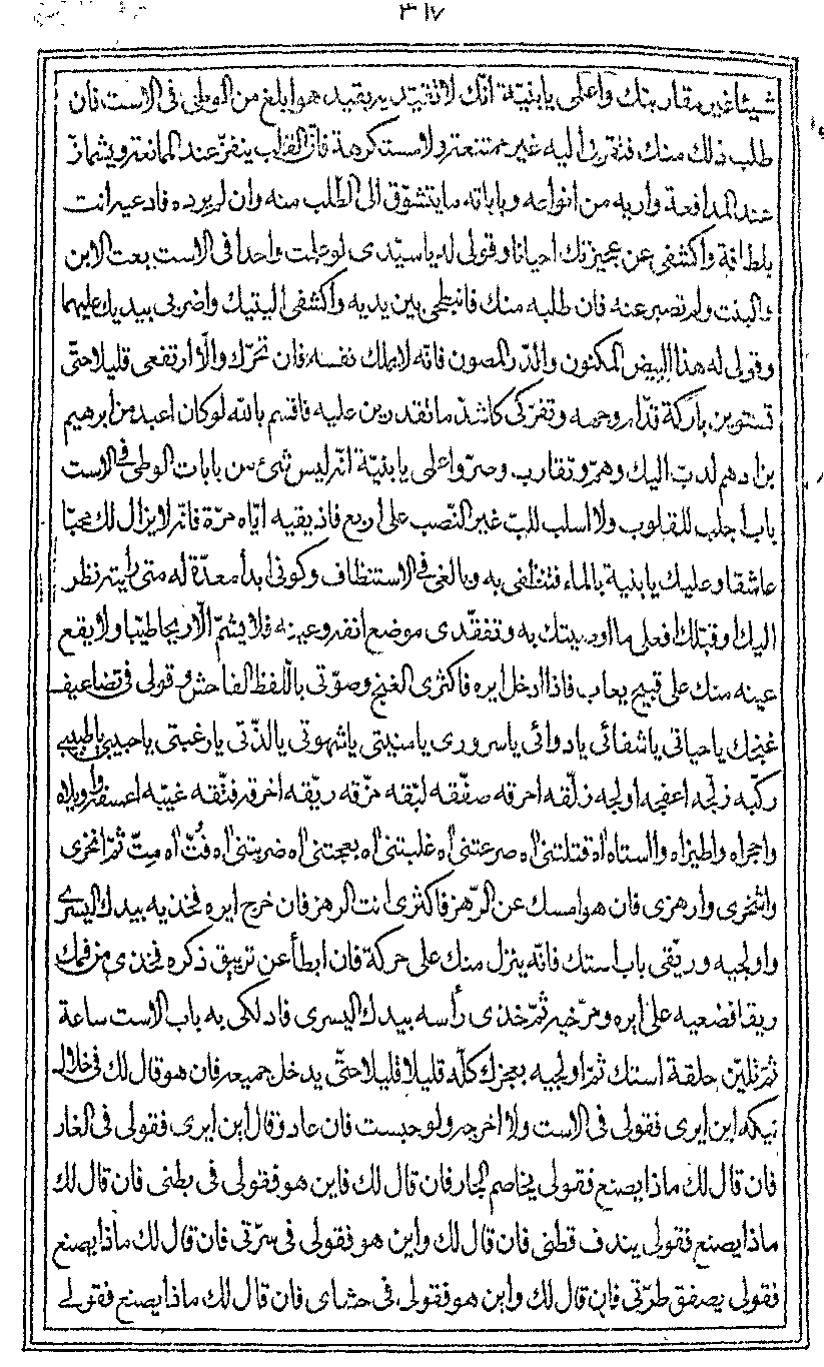 ٣١٧
شيئا غير مقاربتك واعلمى يا بنيّة انّك لا تقيّديه بقيد هو ابلغ من الوطى فى الاست فان
طلب ذلك منك فتقربى اليه غير ممتنعة ولا مستكرهة فانّ القلب ينفرّ عند الممانعة ويشمأزّ
عند المدافعة واريه من انواعه وباباته ما يتشوّق الى الطّلب منه وان لم يرده فادعيه انت
بلطافة واكشفى عن عجيزتك احيانا وقولى له يا سيّدى لو علمت واحدا فى الاست بعت الابن
والبنت ولم تصبر عنه فان طلبه منك فانبطحى بين يديه واكشفى اليتيك واضربى بيديك عليهما
وقولى له هذا البيض المكنون والدّر المصون فانّه لا يملك نفسه فان تحرّك والّا ارتفعى قليلا حتّى
تستوين باركة قدّام وجهه وتفركى كاشدّ ما تقدرين عليه فاقسم بالله لو كان اعبد من ابرهيم
بن ادهم لدبّ اليك وهمّ وتقارب وحرّ واعلمى يا بنيّة انّه ليس شئ من بابات الوطى فى الاست
باب اجلب للقلوب ولا اسلب للبّ غير النّصب على اربع فاذيقيه ايّاه مرّة فانّه لا يزال لك محبّا
عاشقا وعليك يا بنية بالماء فتنظفى به وبالغى فى الاستنظاف وكونى ابدا معدّة له متى رايته نظر
اليك او قبّلك افعلى ما اوصيتك به وتفقّدى موضع انفه وعينه فلا يشمّ الّا ريحا طيّبا ولا يقع
عينه منك على قبيح يعاب فاذا ادخل ايره فاكثرى الغنج وصوّتى باللّفظ الفاحش وقولى فى تضاعيف
غنجك يا حياتى يا شفائى يا دوائى يا سرورى يا منيتى يا شهوتى يا لذّتى يا رغبتى يا حبيبى يا طبيبى
ركّبه زلّجه اعفجه اولجه زلّقه احرقه صفّقه لبّقه مزّقه ريّقه اخرقه فتّقه غيّبه اعسفه واويلاه
واحراه واطيزاه وااستاه اه قتلتنى اه صرعتنى اه غلبتنى اه بعجتنى اه ضربتنى اه فُتّ اه متّ ثمّ انخرى
واشخرى وارهزى فان هو امسك عن الرّهز فاكثرى انت الرهز فان خرج ايره فخذيه بيدك اليسرى
واولجيه وريّقى باب استك فانّه ينزل منك على حركة فان ابطأ عن تربيق ذكره فخذى من فمك
ريقا فضعيه على ايره ومرّخيه ثمّ خذى رأسه بيدك اليسرى فادلكى به باب الاست ساعة
ثمّ تليّن حلقة استك ثمّ اولجيه بعجزك كلّه قليلا قليلا حتّى يدخل جميعه فان هو قال لك فى خلال
نيكه اين ايرى فقولى فى الاست ولا اخرجه ولو حبست فان عاد وقال اين ايرى فقولى فى الغار
فان قال لك ماذا يصنع فقولى يخاصم الجار فان قال لك فاين هو فقولى فى بطنى فان قال لك
ماذا يصنع فقولى يندف قطنى فان قال لك واين هو فقولى فى سرّتى فان قال لك ماذا يصنع
فقولى يصفق طرّتى فان قال لك واين هو فقولى فى حشاى فان قال لك ماذا يصنع فقولى